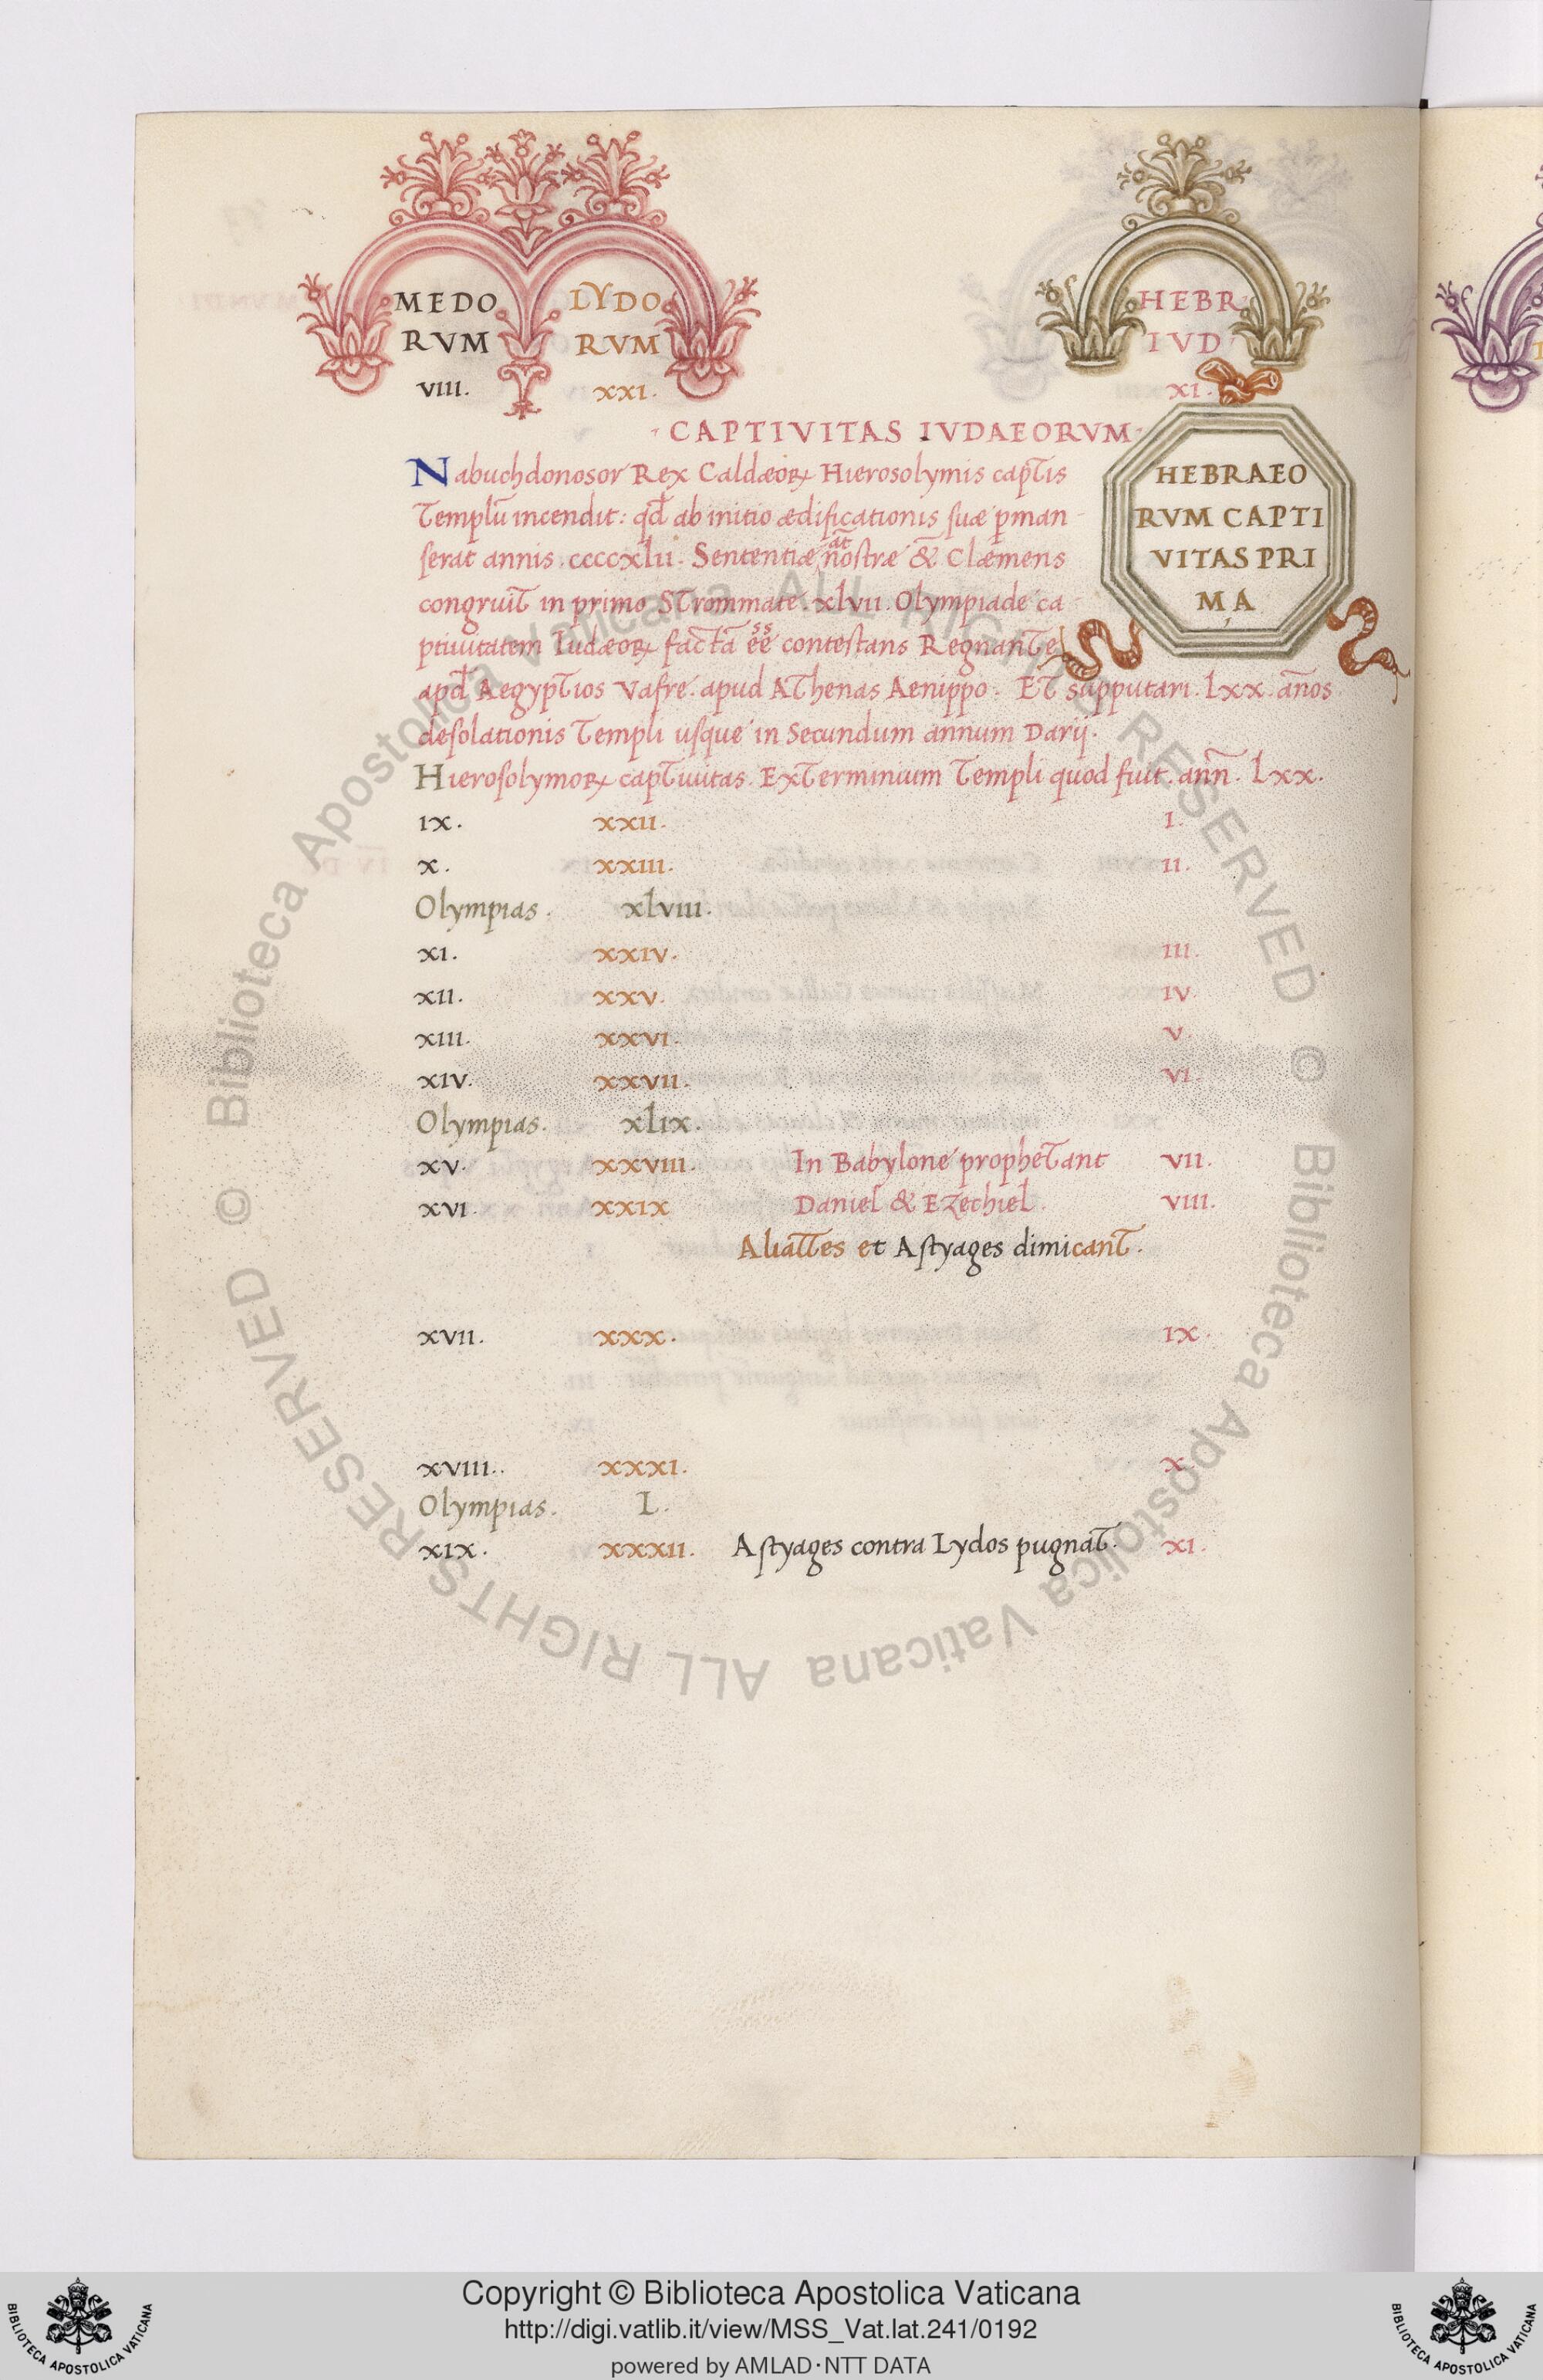 MEDO LYDO HEBR
RVM RVM IVD
VIII. XXI. XI.
CAPTIVITAS IVDAEORVM
HEBRAEO
RVM CAPTI
VITAS PRI
MA
Nabuchdonosor Rex Caldæoꝝ Hierosolymis cap̄tis
Templū incendit: qđ ab initio ædificationis ſuæ ꝑman-
ſerat annis. ccccxlii. Sententiæ at̄ nostræ & Clæmens
congruit in primo Strommate. xlvii. Olympiade ca-
ptiuitatem Iudæoꝝ factā eē ss contestans Regnante
apđ Aegyptios Vafre. apud Athenas Aenippo. Et supputari. Lxx. ān̄os
deſolationis Templi uſque in Secundum annum Darij.
Hieroſolymoꝝ captiuitas. Exterminium Templi quod fuit. ann̄. Lxx.
IX. XXII. I.
X. XXIII. II.
Olympias. xlviii.
XI. XXIV. III.
XII. XXV. IV.
XIII. XXVI. V.
XIV. XXVII. VI.
Olympias. xlix.
XV. XXVIII. In Babylone prophetant VII.
XVI. XXIX Daniel & Ezechiel. VIII.
Aliattes et Astyages dimicant.
XVII. XXX. IX.
XVIII. XXXI. X.
Olympias. L.
XIX. XXXII. Astyages contra Lydos pugnat. XI.
© Biblioteca Apostolica Vaticana ALL RIGHTS RESERVED © Biblioteca Apostolica Vaticana ALL RIGHTS RESERVED
Copyright © Biblioteca Apostolica Vaticana
http://digi.vatlib.it/view/MSS_Vat.lat.241/0192
powered by AMLAD·NTT DATA
BIBLIOTECA APOSTOLICA VATICANA
BIBLIOTECA APOSTOLICA VATICANA